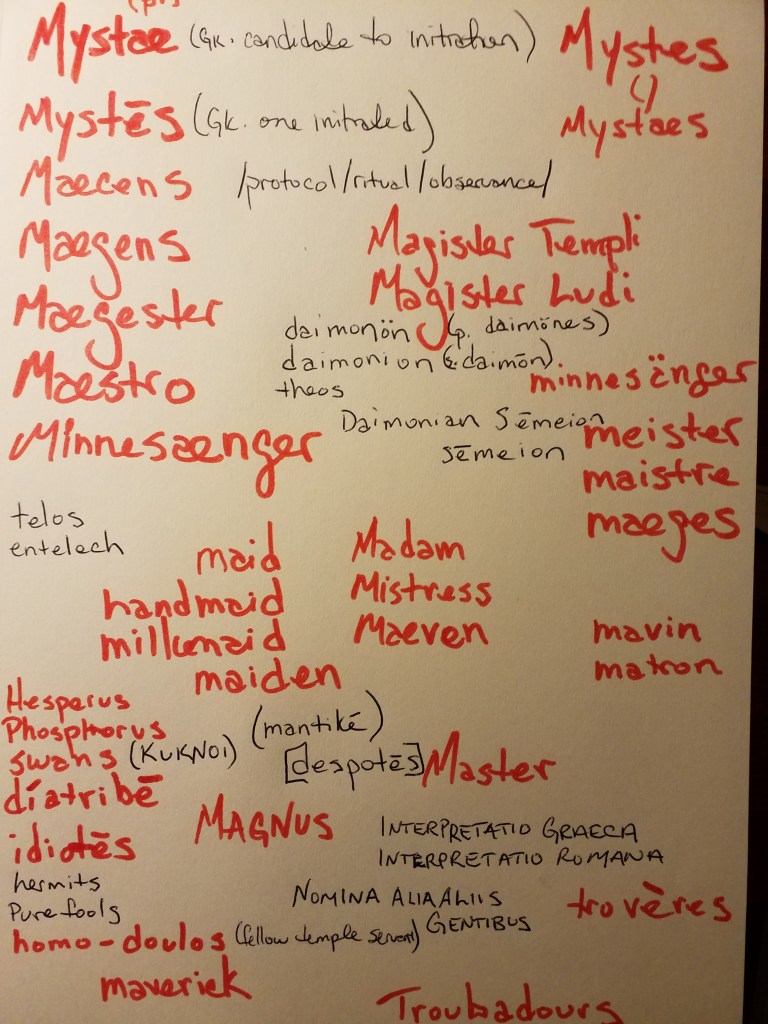 Mystae (Gk. candidate to initiation)
Mystes
()
Mystēs (Gk. one initiated)
Mystaes
Maecens /protocol/ritual/observance/
Maegens
Magister Templi
Magister Ludi
Maegester
daimonön (p. daimönes)
daimonion (s. daimōn)
theos
Maestro
minnesänger
Minnesaenger
Daimonian Sēmeion
sēmeion
meister
maistre
maeges
telos
entelech
maid
handmaid
milkmaid
maiden
Madam
Mistress
Maeven
mavin
matron
Hesperus
Phosphorus
swans (KUKNOI)
(mantikē)
[despotēs] Master
díatribē
MAGNUS
INTERPRETATIO GRAECA
INTERPRETATIO ROMANA
idiotēs
hermits
Pure fools
NOMINA ALIA ALIIS
GENTIBUS
trovères
homo-doulos (fellow temple servent)
maverick
Troubadours